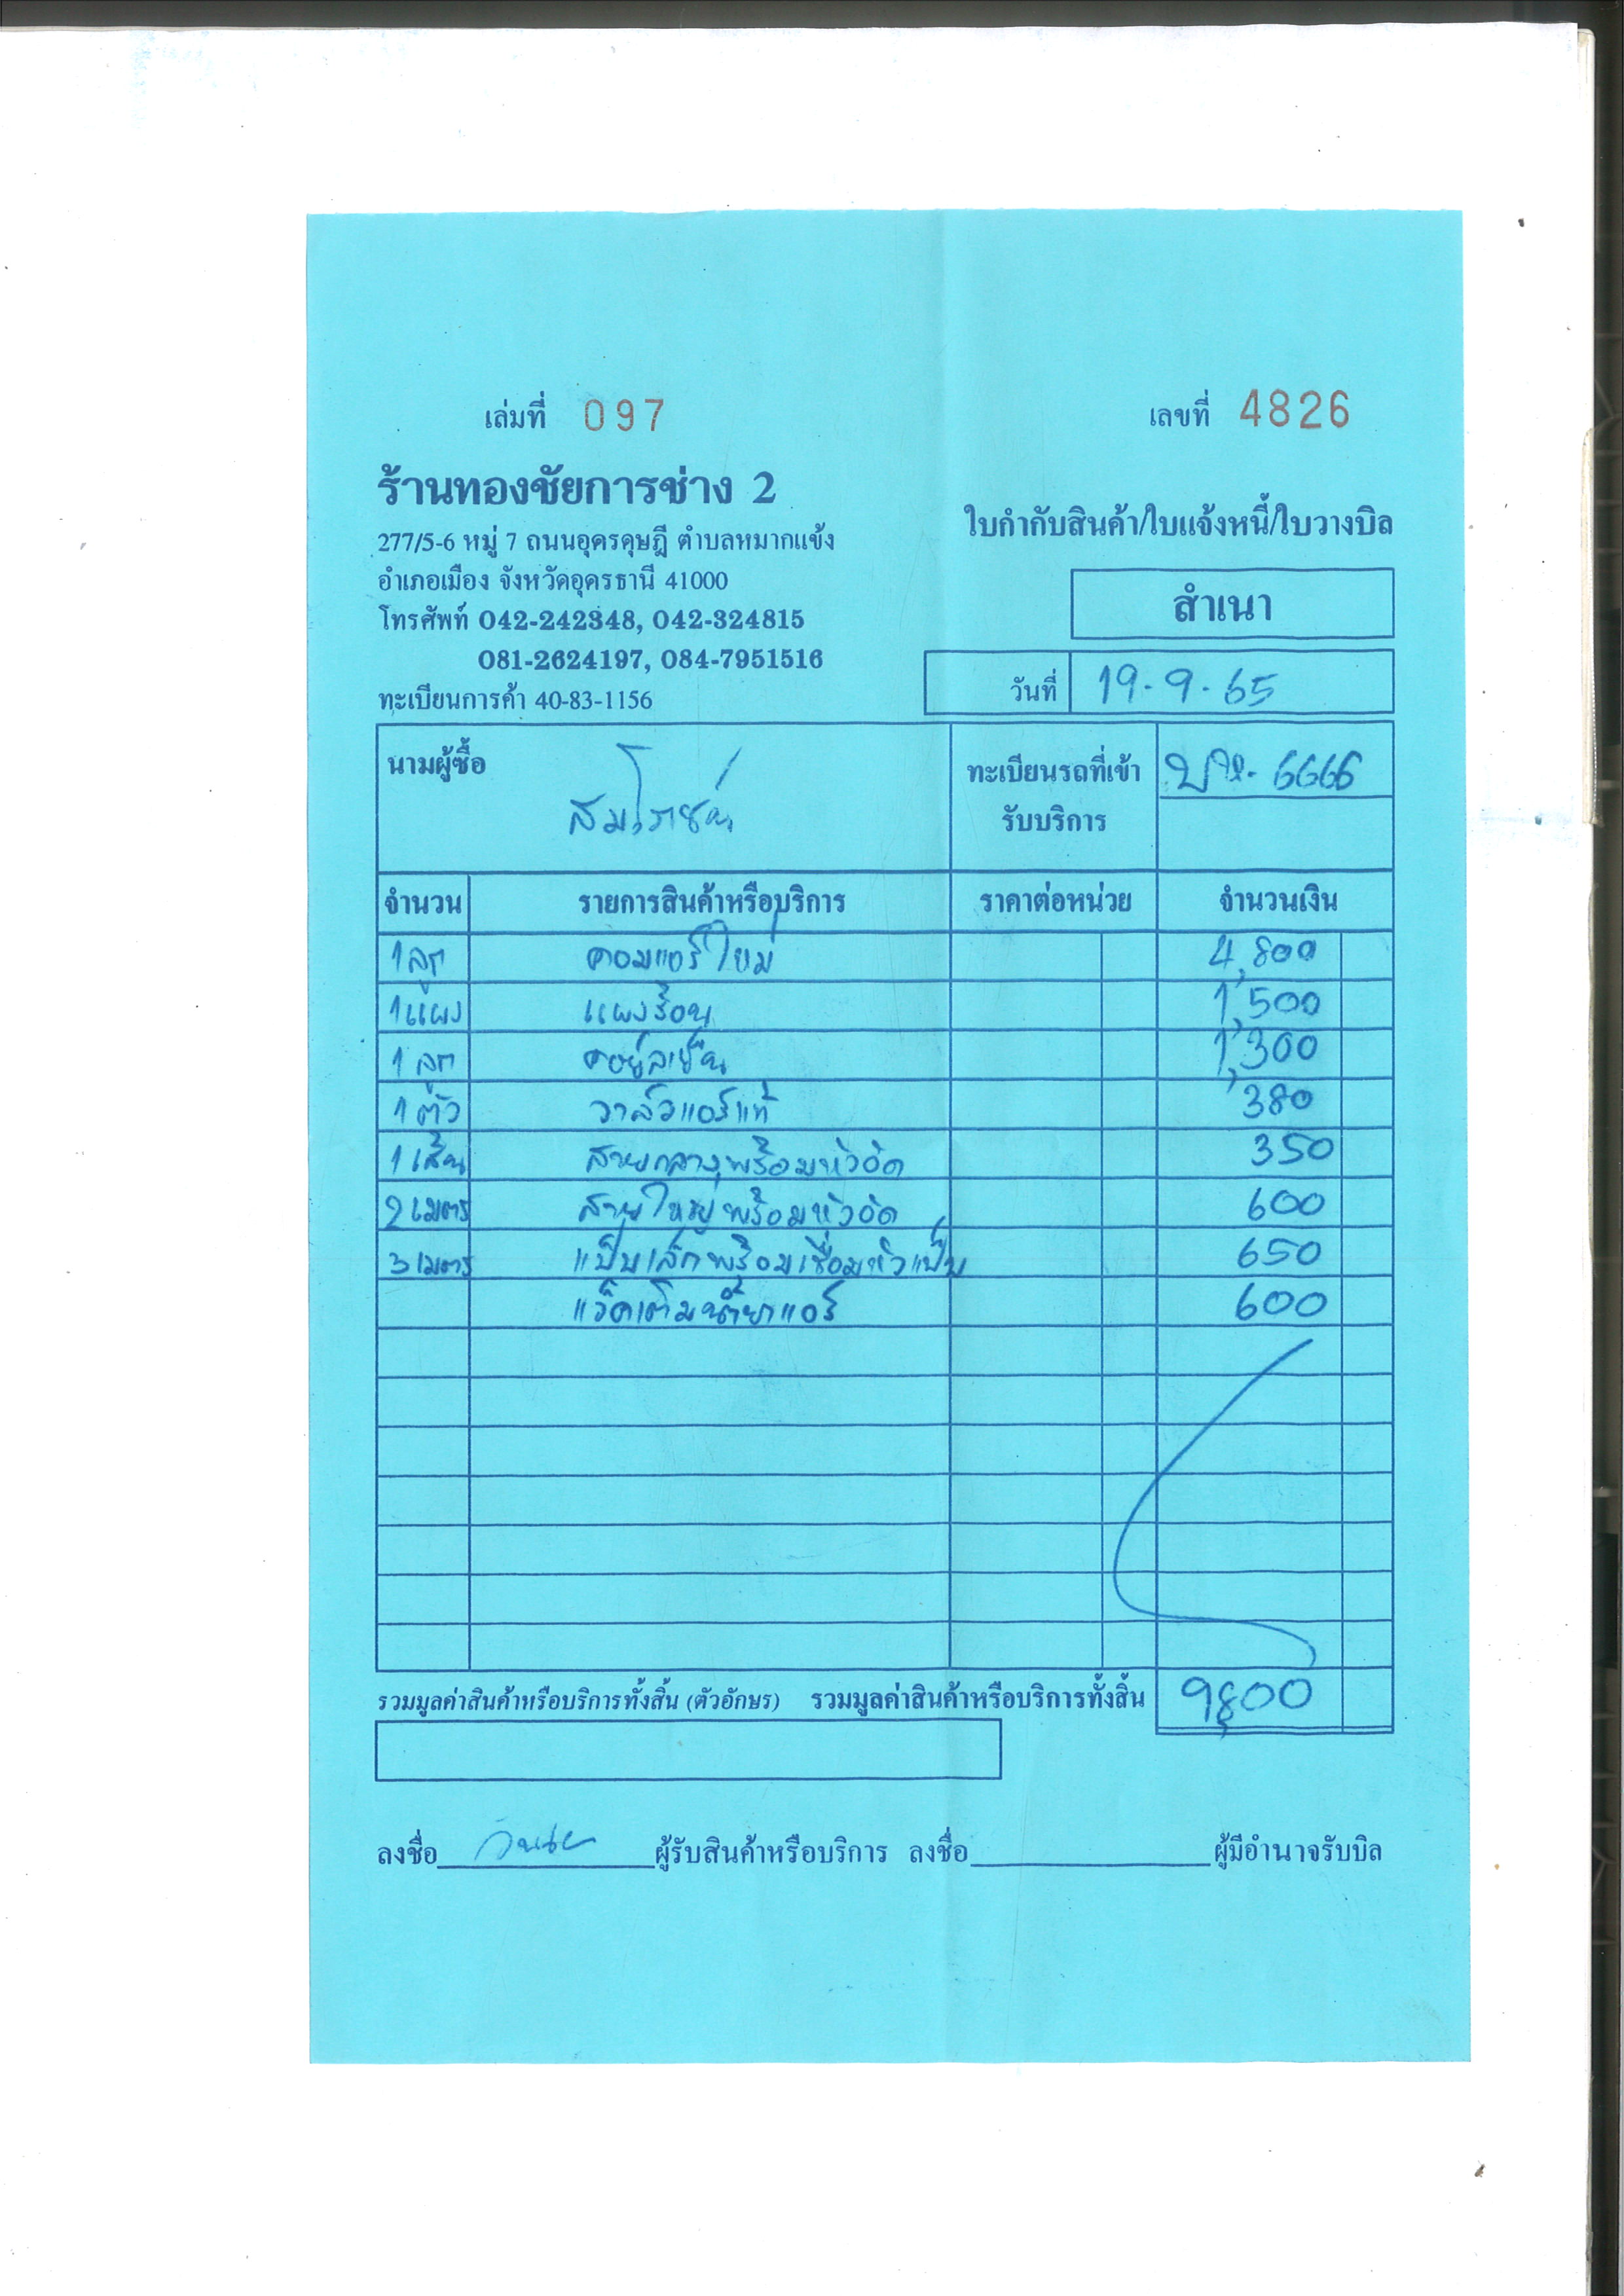 เล่มที่ 097 เลขที่ 4826
ร้านทองชัยการช่าง 2
ใบกำกับสินค้า/ใบแจ้งหนี้/ใบวางบิล
277/5-6 หมู่ 7 ถนนอุดรดุษฎี ตำบลหมากแข้ง
อำเภอเมือง จังหวัดอุดรธานี 41000
สำเนา
โทรศัพท์ 042-242348, 042-324815
081-2624197, 084-7951516
วันที่ 19-9-65
ทะเบียนการค้า 40-83-1156
นามผู้ซื้อ
ทะเบียนรถที่เข้ารับบริการ 6666
จำนวน รายการสินค้าหรือบริการ ราคาต่อหน่วย จำนวนเงิน
1 ลูก คอมแอร์ใหม่ 4,800
1 แผง แผงร้อน 1,500
1 ลูก คอยล์เย็น 1,300
1 ตัว วาล์วแอร์แท้ 380
1 เส้น สายกลางพร้อมหัวอัด 350
2 เมตร สายใหญ่พร้อมหัวอัด 600
3 เมตร แป๊บเล็กพร้อมเชื่อมหัวแป๊บ 650
แว็คเติมน้ำยาแอร์ 600
รวมมูลค่าสินค้าหรือบริการทั้งสิ้น (ตัวอักษร) รวมมูลค่าสินค้าหรือบริการทั้งสิ้น 9,800
ลงชื่อ ผู้รับสินค้าหรือบริการ ลงชื่อ ผู้มีอำนาจรับบิล